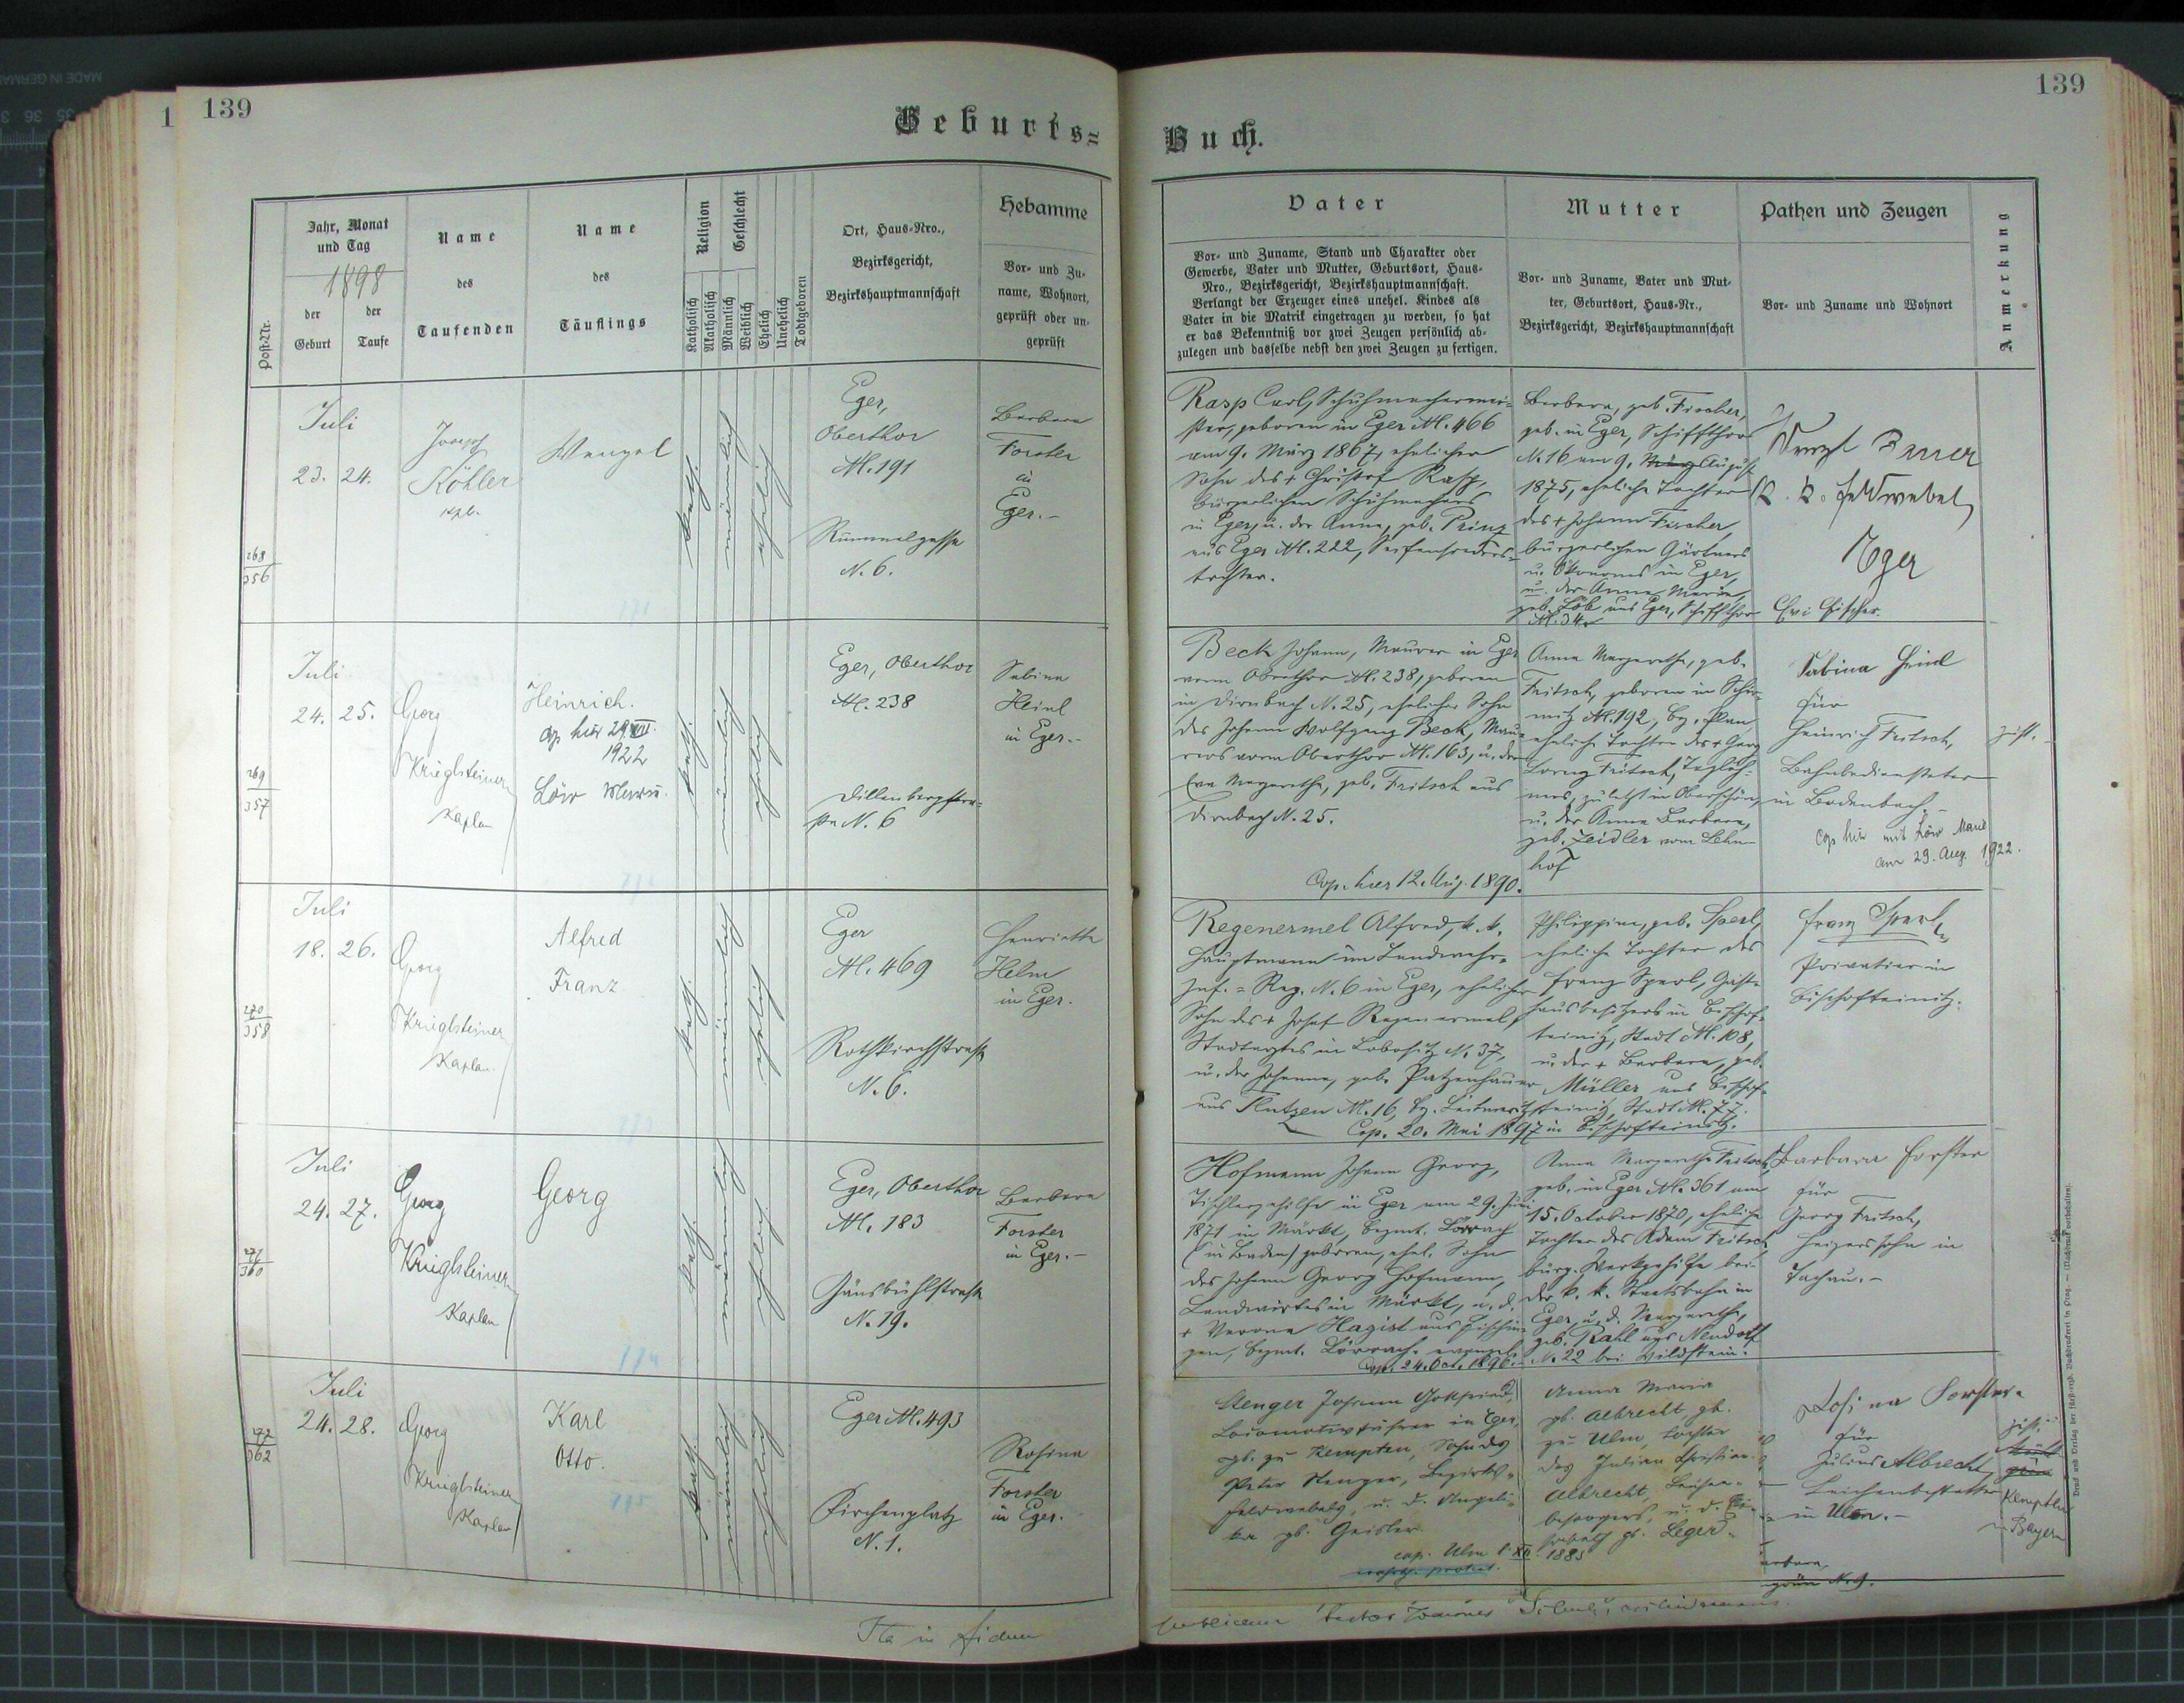 139
Geburts=
Buch.
139
Post-Nr.
Jahr, Monat
und Tag
1898
der
Geburt
der
Taufe
Name
des
Taufenden
Name
des
Täuflings
Religion
Katholisch
Akatholisch
Geschlecht
Männlich
Weiblich
Ehelich
Unehelich
Todtgeboren
Ort, Haus-Nro.,
Bezirksgericht,
Bezirkshauptmannschaft
Hebamme
Vor- und Zu-
name, Wohnort,
geprüft oder un-
geprüft
Vater
Vor- und Zuname, Stand und Charakter oder
Gewerbe, Vater und Mutter, Geburtsort, Haus-
Nro., Bezirksgericht, Bezirkshauptmannschaft.
Verlangt der Erzeuger eines unehel. Kindes als
Vater in die Matrik eingetragen zu werden, so hat
er das Bekenntniß vor zwei Zeugen persönlich ab-
zulegen und dasselbe nebst den zwei Zeugen zu fertigen.
Mutter
Vor- und Zuname, Vater und Mut-
ter, Geburtsort, Haus-Nr.,
Bezirksgericht, Bezirkshauptmannschaft
Pathen und Zeugen
Vor- und Zuname und Wohnort
Anmerkung
268
356
Juli
23. 24.
Joseph
Köhler
Kpl.
Wenzel
kath.
männlich
ehelich
Eger,
Oberthor
N. 191
Rummelgasse
N. 6.
Barbara
Forster
in
Eger.-
Rasp Carl, Schuhmachermei-
ster, geboren in Eger N. 466
am 9. März 1867, ehelicher
Sohn des + Christof Rasp,
bürgerlichen Schuhmachers
in Eger, u. der Anna, geb. Prinz
aus Eger N. 222, Seifensieders-
tochter.
Barbara, geb. Fischer,
geb. in Eger, Schiffthor
N. 16 am 9. März August
1875, eheliche Tochter
des + Johann Fischer,
bürgerlichen Gärtners
u. Ökonoms in Eger,
u. der Anna Maria,
geb. Löb aus Eger, Schiffthor
N. 34.
Wenzl Bauer
k. k. Feldwebel
Eger
Evi Fischer.
269
357
Juli
24. 25.
Georg
Krieglsteiner
Kaplan
Heinrich.
cop hier 29.VIII.
1922
Löw Marie.
kath.
männlich
ehelich
Eger, Oberthor
N. 238
Dillenbergstra-
ße N. 6
Sabina
Heinl
in Eger.-
Beck Johann, Maurer in Eger
vorm Oberthor N. 238, geboren
in Dirnbach N. 25, ehelicher Sohn
des Johann Wolfgang Beck, Mau-
rers vorm Oberthor N. 163, u. der
Eva Margaretha, geb. Fritsch aus
Dirnbach N. 25.
Cop. hier 12. Aug. 1890.
Anna Margaretha, geb.
Fritsch, geboren in
N. 192, Bz. Plan
eheliche Tochter des + Georg
Lorenz Fritsch, Taglöh-
ners, zuletzt in Oberschön,
u. der Anna Barbara,
geb. Zeidler vom Lehn-
hof
Sabina Heinl
für
Heinrich Fritsch,
Bahnbediensteter
in Bodenbach.-
cop hier mit Löw Marie
am 29. Aug. 1922.
zust.
270
358
Juli
18. 26.
Georg
Krieglsteiner
Kaplan.
Alfred
Franz
kath.
männlich
ehelich
Eger
N. 469
Rothkirchstraße
N. 6.
Henriette
Helm
in Eger.
Regenermel Alfred, k. k.
Hauptmann im Landwehr-
Inf.=Reg. N. 6 in Eger, ehelicher
Sohn des + Josef Regenermel,
Stadtarztes in Lobositz N. 37,
u. der Johanna, geb. Patzenhauer
aus N. 16, Bz. Leitmeritz
Cop. 20. Mai 1897 in Bischofteinitz.
Philippine, geb. Sperl,
eheliche Tochter des
Franz Sperl, Gast-
hausbesitzers in Bischof-
teinitz, Stadt N. 108,
u. der + Barbara, geb.
Müller aus Bischof-
teinitz, Stadt N. 77.
Franz Sperl,
Privatier in
Bischofteinitz.
271
360
Juli
24. 27.
Georg
Krieglsteiner
Kaplan
Georg
kath.
männlich
ehelich
Eger, Oberthor
N. 183
Gänsbühlstraße
N. 19.
Barbara
Forster
in Eger.-
Hofmann Johann Georg,
Tischlergehilfe in Eger am 29. Juni
1871 in Märkt, Bezmt. Lörrach
(in Baden) geboren, ehel. Sohn
des Johann Georg Hofmann,
Landwirtes in Märkt, u. d.
+ Verona Hagist aus Fischin-
gen, Bezmt. Lörrach. evangel.
Cop. 24. Oct. 1896.
Anna Margaretha Fritsch,
geb. in Eger N. 361 am
15. October 1870, eheliche
Tochter des Adam Fritsch
bürg. Werkgehilfe bei
der k. k. Staatsbahn in
Eger, u. d. Margaretha,
geb. Rahl aus Neudorf
N. 22 bei Wildstein.
Barbara Forster
für
Georg Fritsch,
Heizerssohn in
Tachau.-
272
362
Juli
24. 28.
Georg
Krieglsteiner
Kaplan
Karl
Otto.
kath.
männlich
ehelich
Eger N. 493
Kirchenplatz
N. 1.
Rosina
Forster
in Eger.
Stenger Johann Gottfried,
Locomotivführer in Eger,
gb. zu Kempten, Sohn des
Peter Stenger, Bezirks-
feldwebels, u. d. Angeli-
ka gb. Geisler
cop. Ulm 1. XII. 1885
Anna Maria
gb. Albrecht gb.
zu Ulm, Tochter
des Julian Christian
Albrecht, Leichen-
besorgers, u. d. Eli-
sabeth gb. Leger
Rosina Forster.
für
Julius Albrecht
Leichenbestatter
in Ulm.-
zust.
Kempten
in Bayern
171
172
173
174
175
Ita in fidem